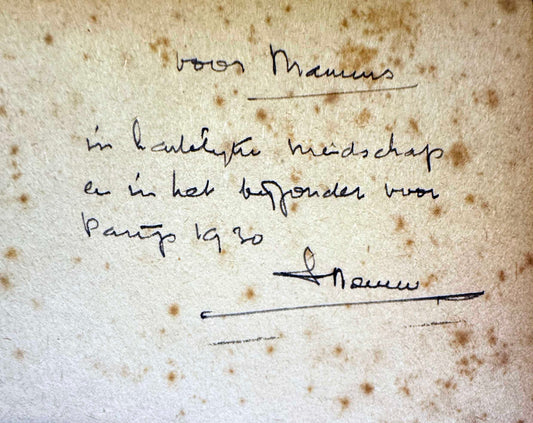 voor Mamuus
in hartelijke vriendschap
en in het bijzonder voor
Parijs 1930